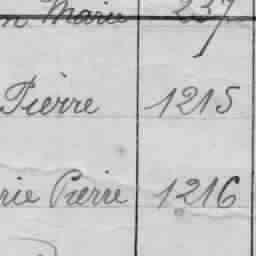 n Marie 237
Pierre 1215
rie Pierre 1216